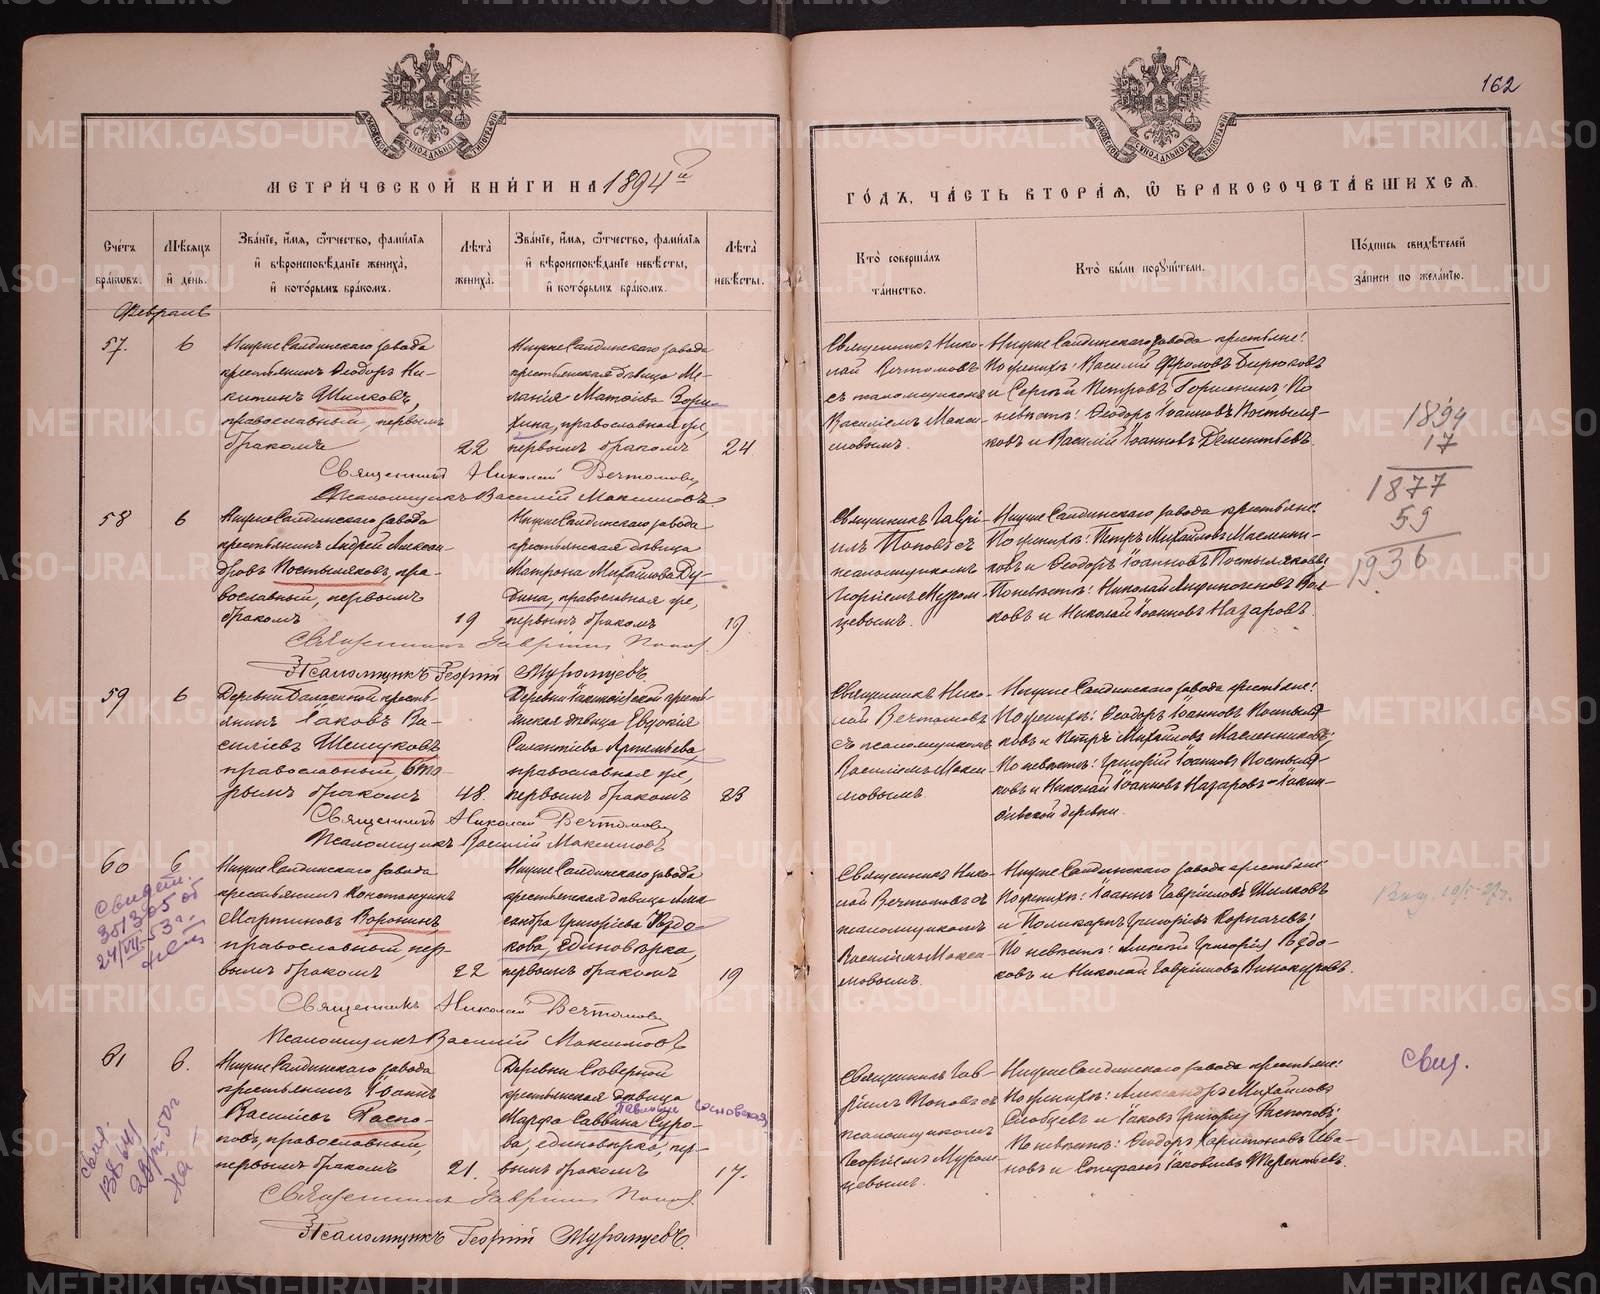 162
МЕТРИЧЕСКОЙ КНИГИ НА 1894й
ГОДЪ, ЧАСТЬ ВТОРАЯ, Ѿ БРАКОСОЧЕТАВШИХСЯ.
Счетъ браковъ.
Мѣсяцъ и день.
Званіе, имя, ѿтчество, фамилія и вѣроисповѣданіе жениха, и которымъ бракомъ.
Лѣта жениха.
Званіе, имя, ѿтчество, фамилія и вѣроисповѣданіе невѣсты, и которымъ бракомъ.
Лѣта невѣсты.
Кто совершалъ таинство.
Кто были поручители.
Подпись свидѣтелей записи по желанію.
Февраль
57.
6
Нижне Салдинскаго завода
крестьянинъ Ѳеодоръ Ни-
китинъ Шилковъ,
православный, первымъ
бракомъ
22
Нижне Салдинскаго завода
крестьянская дѣвица Ме-
ланія Матѳіева Зори-
хина, православной
первымъ бракомъ
24
Священникъ Нико-
лай Вечтомовъ
съ псаломщикомъ
Василіемъ Макси-
мовымъ.
Нижне Салдинскаго завода крестьяне:
По женихѣ: Василій Фроловъ Бирюковъ
и Сергѣй Петровъ Горшенинъ; По
невѣстѣ: Ѳеодоръ Іоанновъ Постыля-
ковъ и Василій Іоанновъ Дементьевъ.
Священникъ Николай Вечтомовъ
Псаломщикъ Василій Максимовъ.
1894
17
1877
59
1936
58
6
Нижне Салдинскаго завода
крестьянинъ Андрей Алексан-
дровъ Постыляковъ, пра-
вославный, первымъ
бракомъ
19
Нижне Салдинскаго завода
крестьянская дѣвица
Матрона Михайлова Ду-
дина, православная
первымъ бракомъ
19
Священникъ Гаврі-
илъ Поповъ съ
псаломщикомъ
Георгіемъ Муром-
цевымъ.
Нижне Салдинскаго завода крестьяне:
По женихѣ: Петръ Михайловъ Масленни-
ковъ и Ѳеодоръ Іоанновъ Постыляковъ;
По невѣстѣ: Николай Аѳиногеновъ Вол-
ковъ и Николай Іоанновъ Назаровъ.
Священникъ Гавріилъ Поповъ.
Псаломщикъ Георгій Муромцевъ.
59
6
Деревни Балакиной кресть-
янинъ Іаковъ Ва-
силіевъ Шешуковъ
православный, вто-
рымъ бракомъ
48.
крестьянская дѣвица Евдокія
Силантіева Артемьева,
православная
первымъ бракомъ
23
Священникъ Нико-
лай Вечтомовъ
съ псаломщикомъ
Василіемъ Макси-
мовымъ.
Нижне Салдинскаго завода крестьяне:
По женихѣ: Ѳеодоръ Іоанновъ Постыля-
ковъ и Петръ Михайловъ Масленниковъ;
По невѣстѣ: Григорій Іоанновъ Постыля-
ковъ и Николай Іоанновъ Назаровъ
деревни.
Священникъ Николай Вечтомовъ
Псаломщикъ Василій Максимовъ
60
6
Нижне Салдинскаго завода
крестьянинъ Константинъ
Мартиновъ Воронинъ
православный, пер-
вымъ бракомъ
22
Нижне Салдинскаго завода
крестьянская дѣвица Алек-
сандра Григоріева Рѣдь-
кова, единовѣрка,
первымъ бракомъ
19
Священникъ Нико-
лай Вечтомовъ съ
псаломщикомъ
Василіемъ Макси-
мовымъ.
Нижне Салдинскаго завода крестьяне
По женихѣ: Іоаннъ Гавріиловъ Шилковъ
и Поликарпъ Григорьевъ Корпачевъ;
По невѣстѣ: Алексѣй Григорьевъ Рѣдь-
ковъ и Николай Гавріиловъ Винокуровъ.
Священникъ Николай Вечтомовъ
Псаломщикъ Василій Максимовъ
61
6.
Нижне Салдинскаго завода
крестьянинъ Іоаннъ
Василіевъ Распо-
повъ, православный,
первымъ бракомъ
21.
Деревни Северной
крестьянская дѣвица
Марѳа Саввина Суро-
ва, единовѣрка, пер-
вымъ бракомъ
17.
Священникъ Гав-
ріилъ Поповъ съ
псаломщикомъ
Георгіемъ Муром-
цевымъ.
Нижне Салдинскаго завода крестьяне:
По женихѣ: Александръ Михайловъ
Слобцевъ и Іаковъ Григорьевъ
По невѣстѣ: Ѳеодоръ Харитоновъ Ива-
новъ и Стефанъ Іаковлевъ Терентьевъ.
Свид.
Священникъ Гавріилъ Поповъ.
Псаломщикъ Георгій Муромцевъ.
METRIKI.GASO-URAL.RU